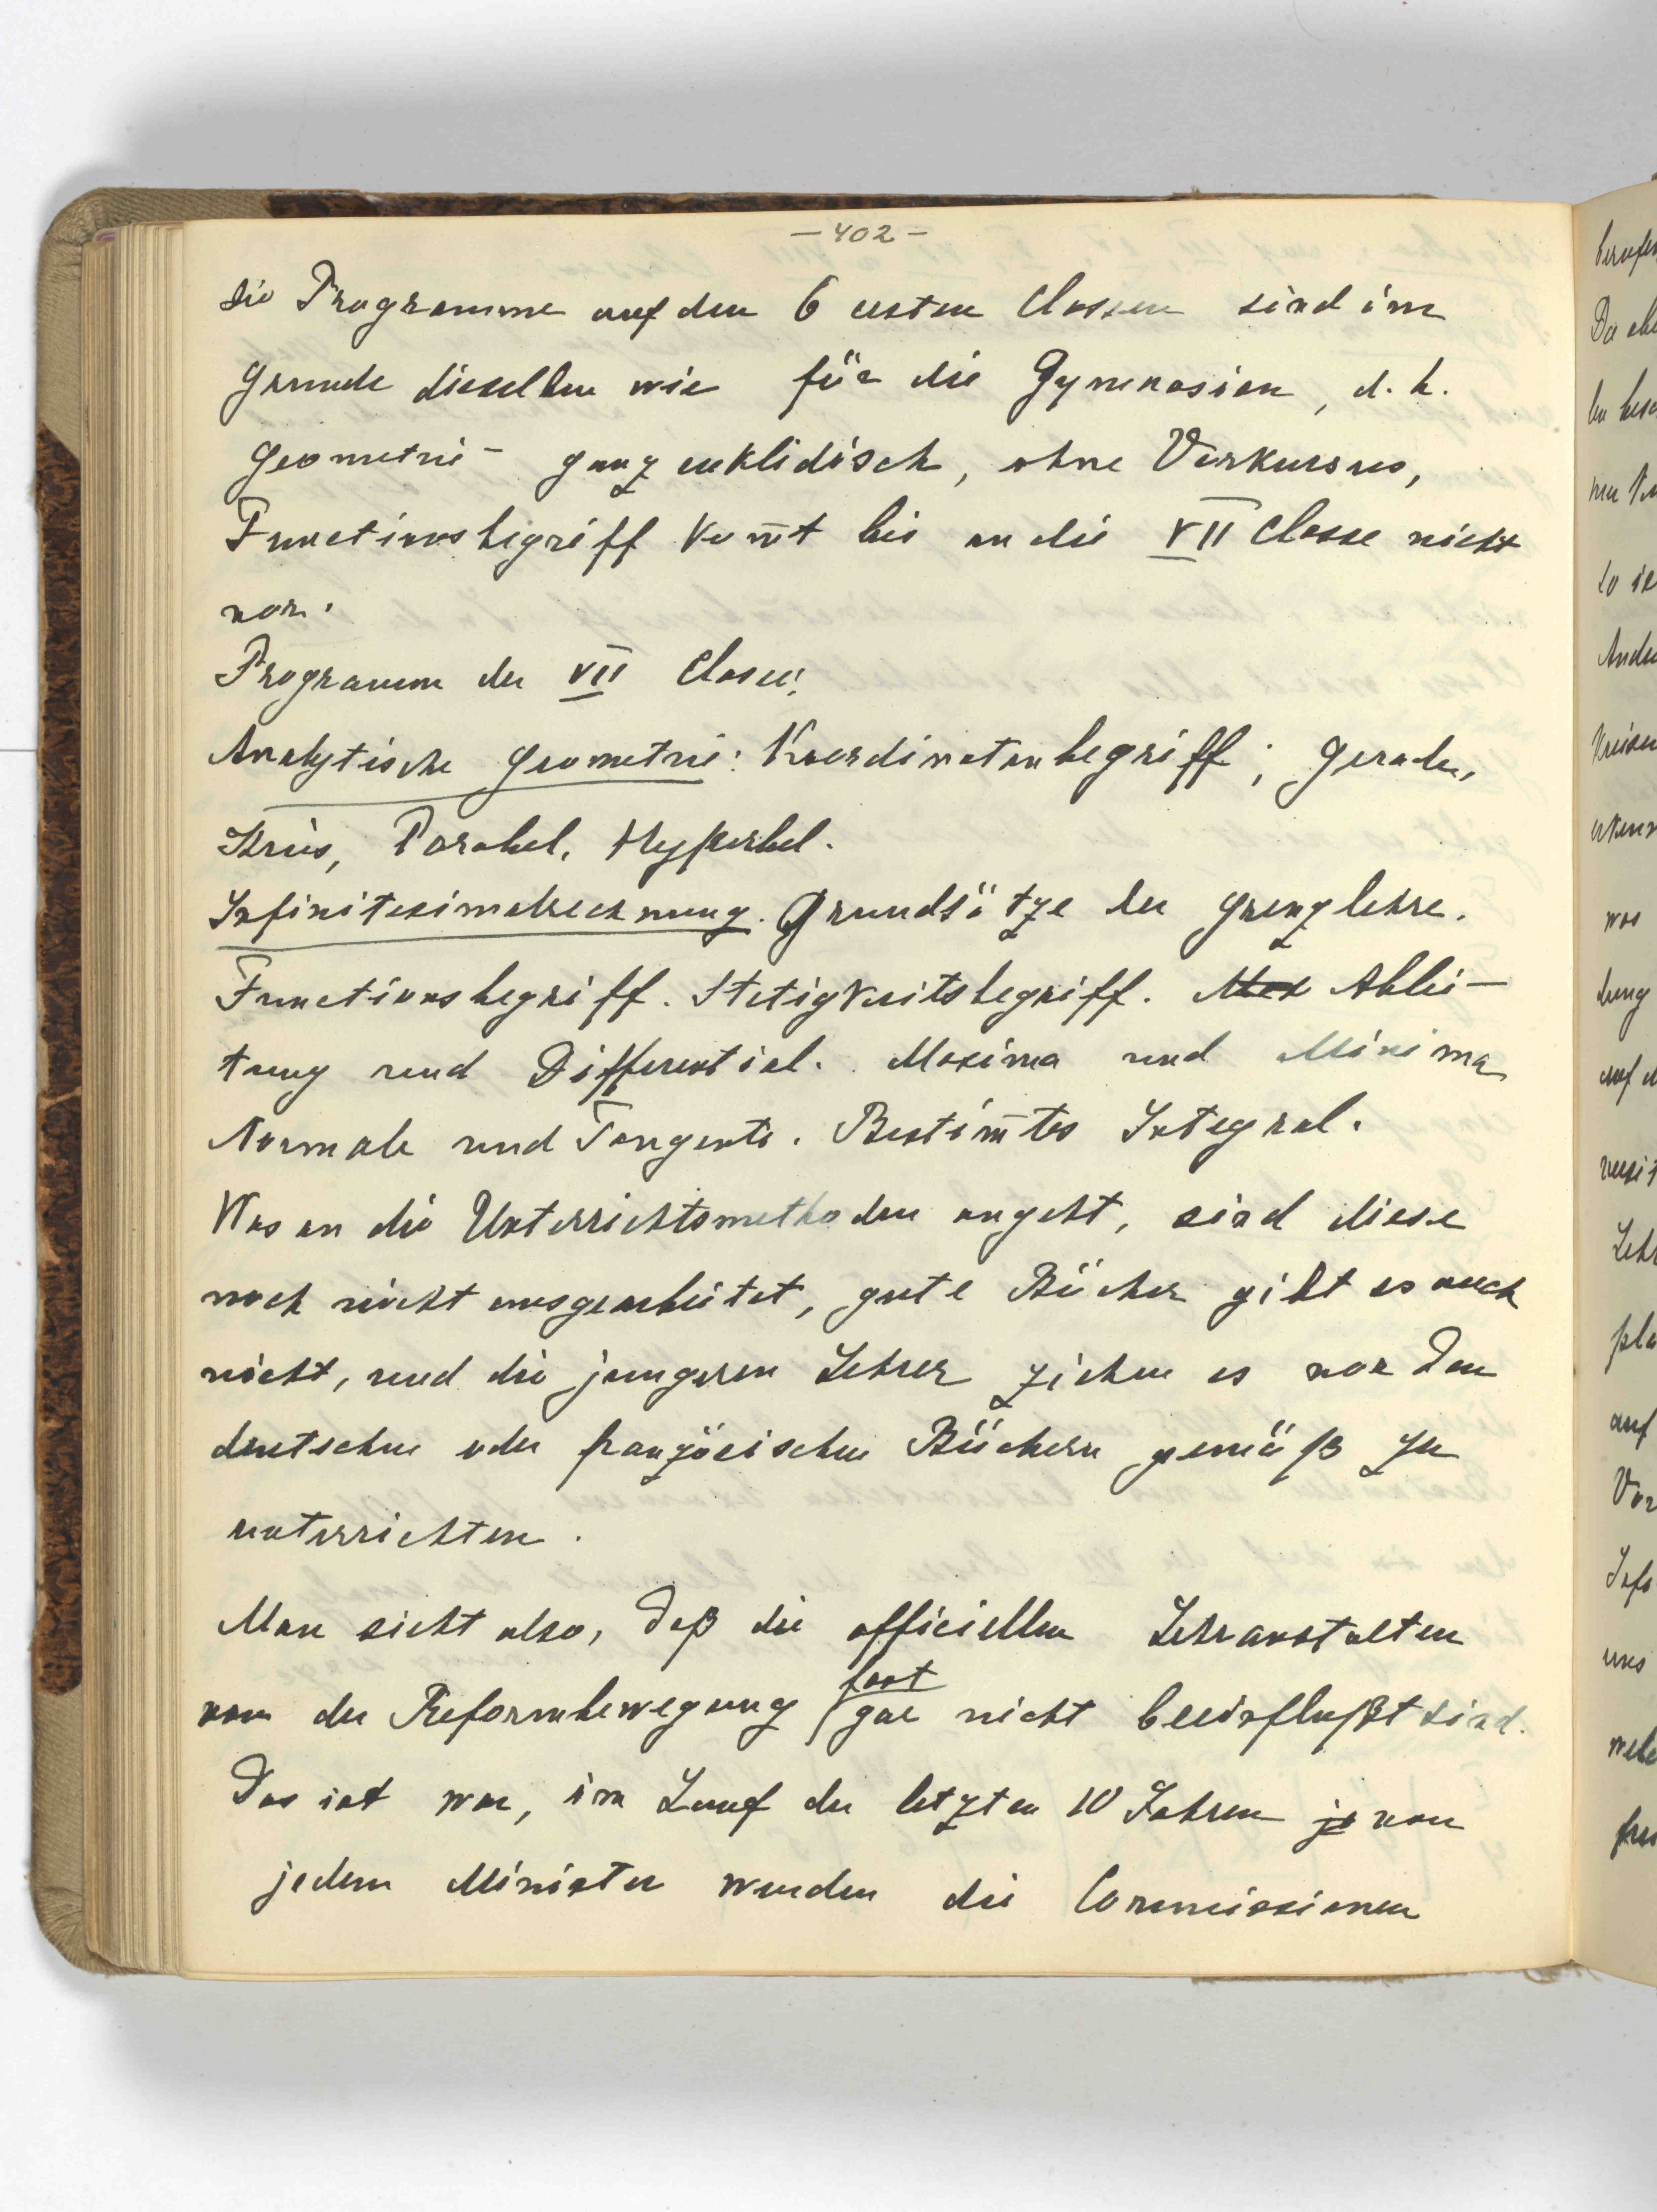 — 402 —
Die Programme auf den 6 ersten Classen sind im
Grunde dieselben wie für die Gymnasien, d. h.
Geometrie – ganz euklidisch, ohne Vorkursus,
Functionsbegriff kom̄t bis an die VII Classe nicht
vor.
Programm der VII Classe:
Analytische Geometrie: Koordinatenbegriff; Gerade,
Kreis, Parabel, Hyperbel.
Infinitesimalrechnung. Grundsätze der Grenzlehre.
Functionsbegriff. Stetigkeitsbegriff. Max Ablei-
tung und Differential. Maxima und Minima
Normale und Tangente. Bestim̄tes Integral.
Was an die Unterrichtsmethoden angeht, sind diese
noch nicht ausgearbeitet, gute Bücher gibt es auch
nicht, und die jungeren Lehrer ziehen es vor den
deutschen oder französischen Büchern gemäß zu
unterrichten.
Man sieht also, daß die officiellen Lehranstalten
von der Reformbewegung fast gar nicht beeinflußt sind.
Das ist war, im Lauf der letzten 10 Jahren je von
jedem Minister wurden die Commissionen